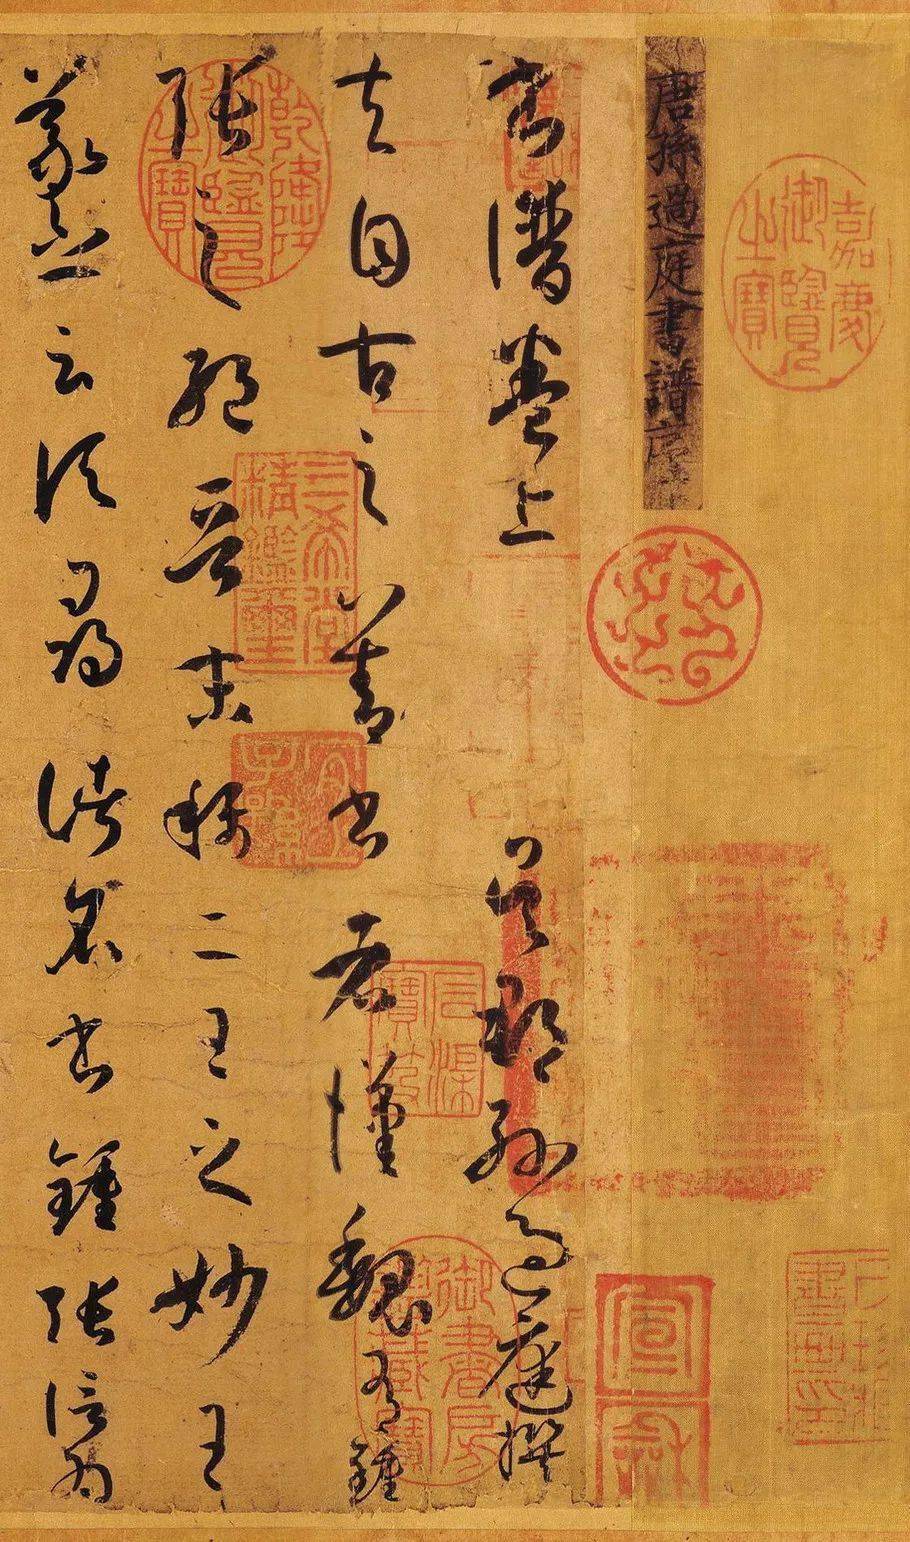 嘉慶御覽之寶
唐孫過庭書譜序
宣龢
書譜卷上 吳郡孫過庭撰
夫自古之善書者漢魏有鍾
張之絕晉末稱二王之妙王
羲之云頃尋諸名書鍾張信為
乾隆御覽之寶
三希堂精鑑璽
宜子孫
石渠寶笈
御書房鑒藏寶